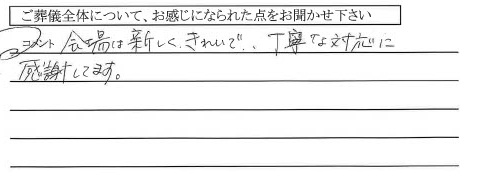 ご葬儀全体について、お感じになられた点をお聞かせ下さい
コメント 会場は新しく、きれいで、丁寧な対応に
感謝してます。